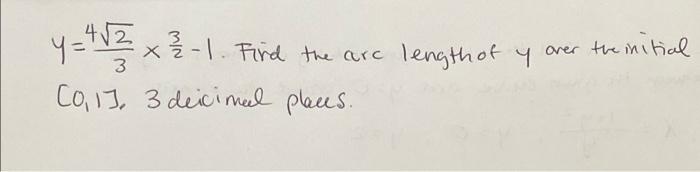 y = 4√2/3 x 3/2 - 1. Find the arc length of y over the initial
[0,1], 3 deicimal places.